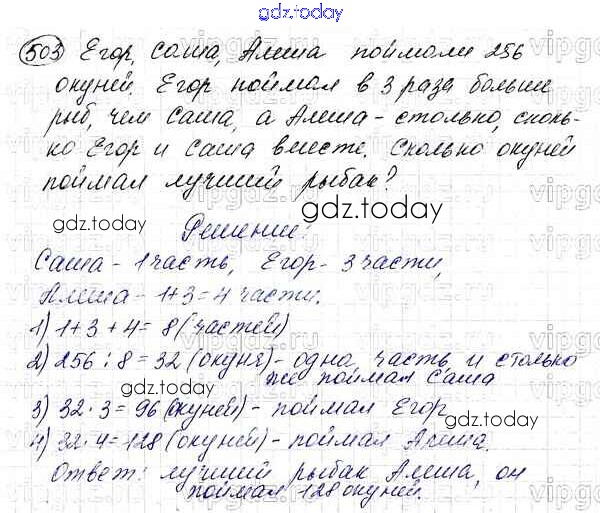 gdz.today
503 Егор, Саша, Алеша поймали 256
окуней. Егор поймал в 3 раза больше
рыб, чем Саша, а Алеша - столько, сколь-
ко Егор и Саша вместе. Сколько окуней
поймал лучший рыбак?
gdz.today
gdz.today
Решение:
Саша - 1 часть, Егор - 3 части,
Алеша - 1+3=4 части.
1) 1+3+4=8 (частей)
2) 256:8=32 (окуня) - одна часть и столько
же поймал Саша
gdz.today
gdz.today
3) 32·3=96 (окуней) - поймал Егор
4) 32·4=128 (окуней) - поймал Алеша.
Ответ: лучший рыбак Алеша, он
поймал 128 окуней.